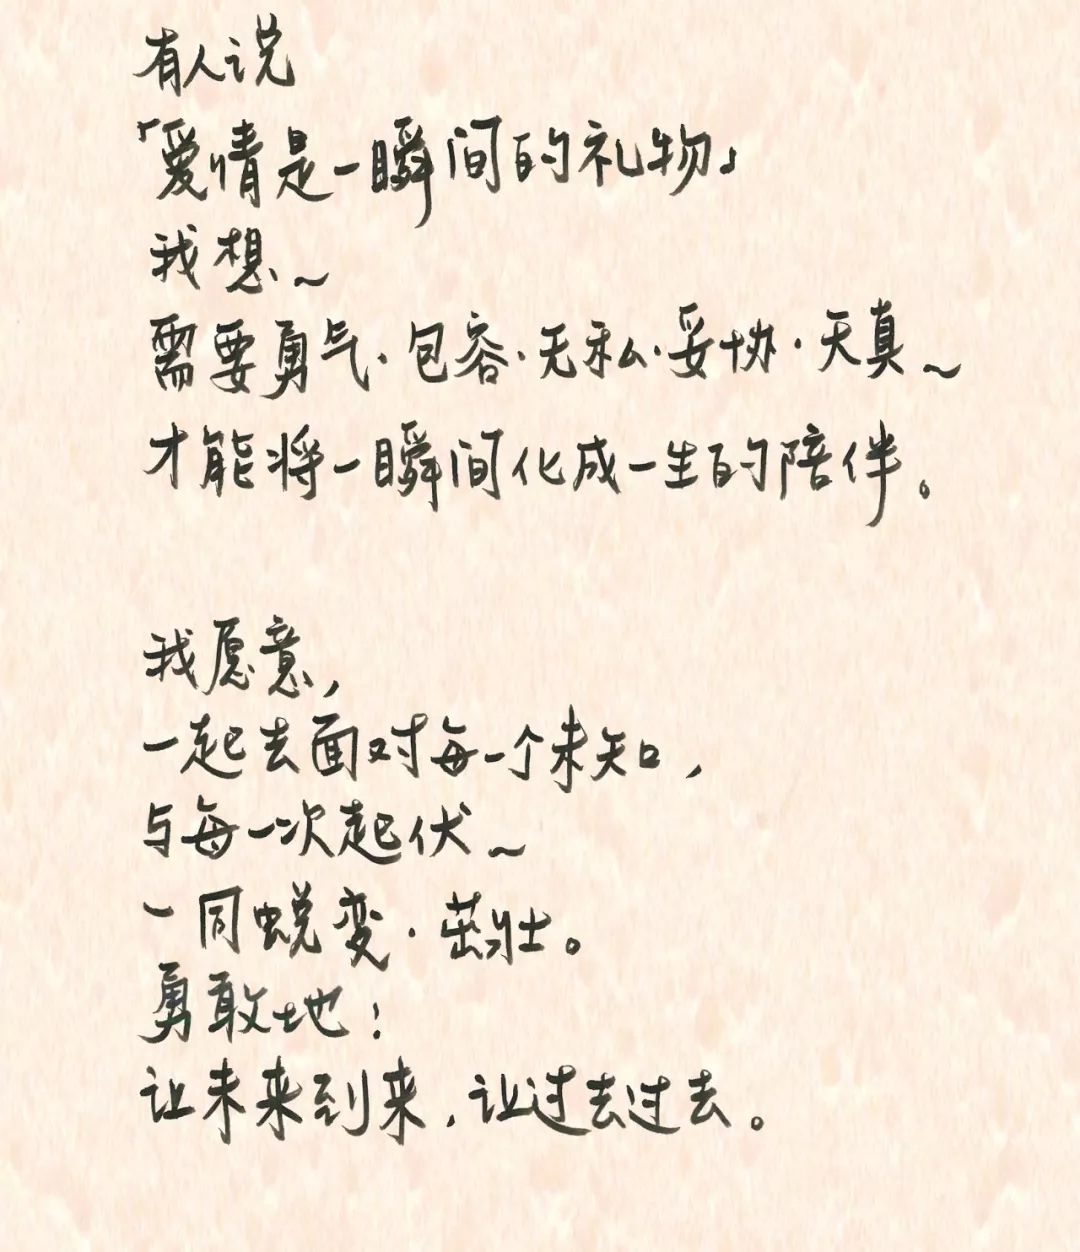 有人说
「爱情是一瞬间的礼物」
我想~
需要勇气·包容·无私·妥协·天真~
才能将一瞬间化成一生的陪伴。
我愿意,
一起去面对每一个未知,
与每一次起伏~
一同蜕变·茁壮。
勇敢地:
让未来到来,让过去过去。